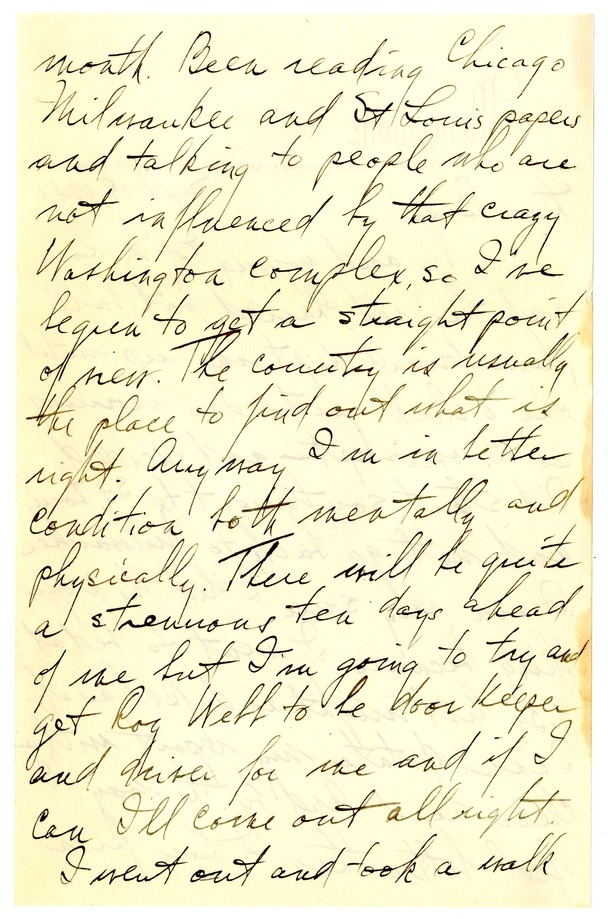 month. Been reading Chicago
Milwaukee and St Louis papers
and talking to people who are
not influenced by that crazy
Washington complex, so I've
begun to get a straight point
of view. The country is usually
the place to find out what is
right. Any way I'm in better
condition both mentally and
physically. There will be quite
a strenuous ten days ahead
of me but I'm going to try and
get Roy Webb to be door keeper
and driver for me and if I
can I'll come out all right.
I went out and took a walk